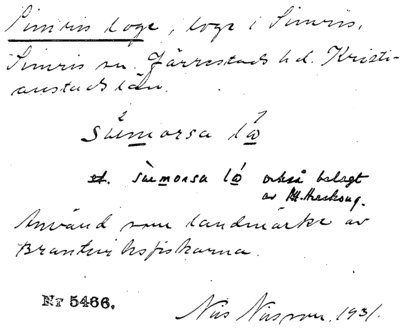 Simris loge, loge i Simris,
Simris sn. Järrestads hd. Kristi-
anstads län.
su̇morsa lꞷ́
st. su̇morsa lꞷ́ också belagt
av
Använd som landmärke av
Brantviksfiskarna.
Nr 5466. Nils Nilsson, 1931.